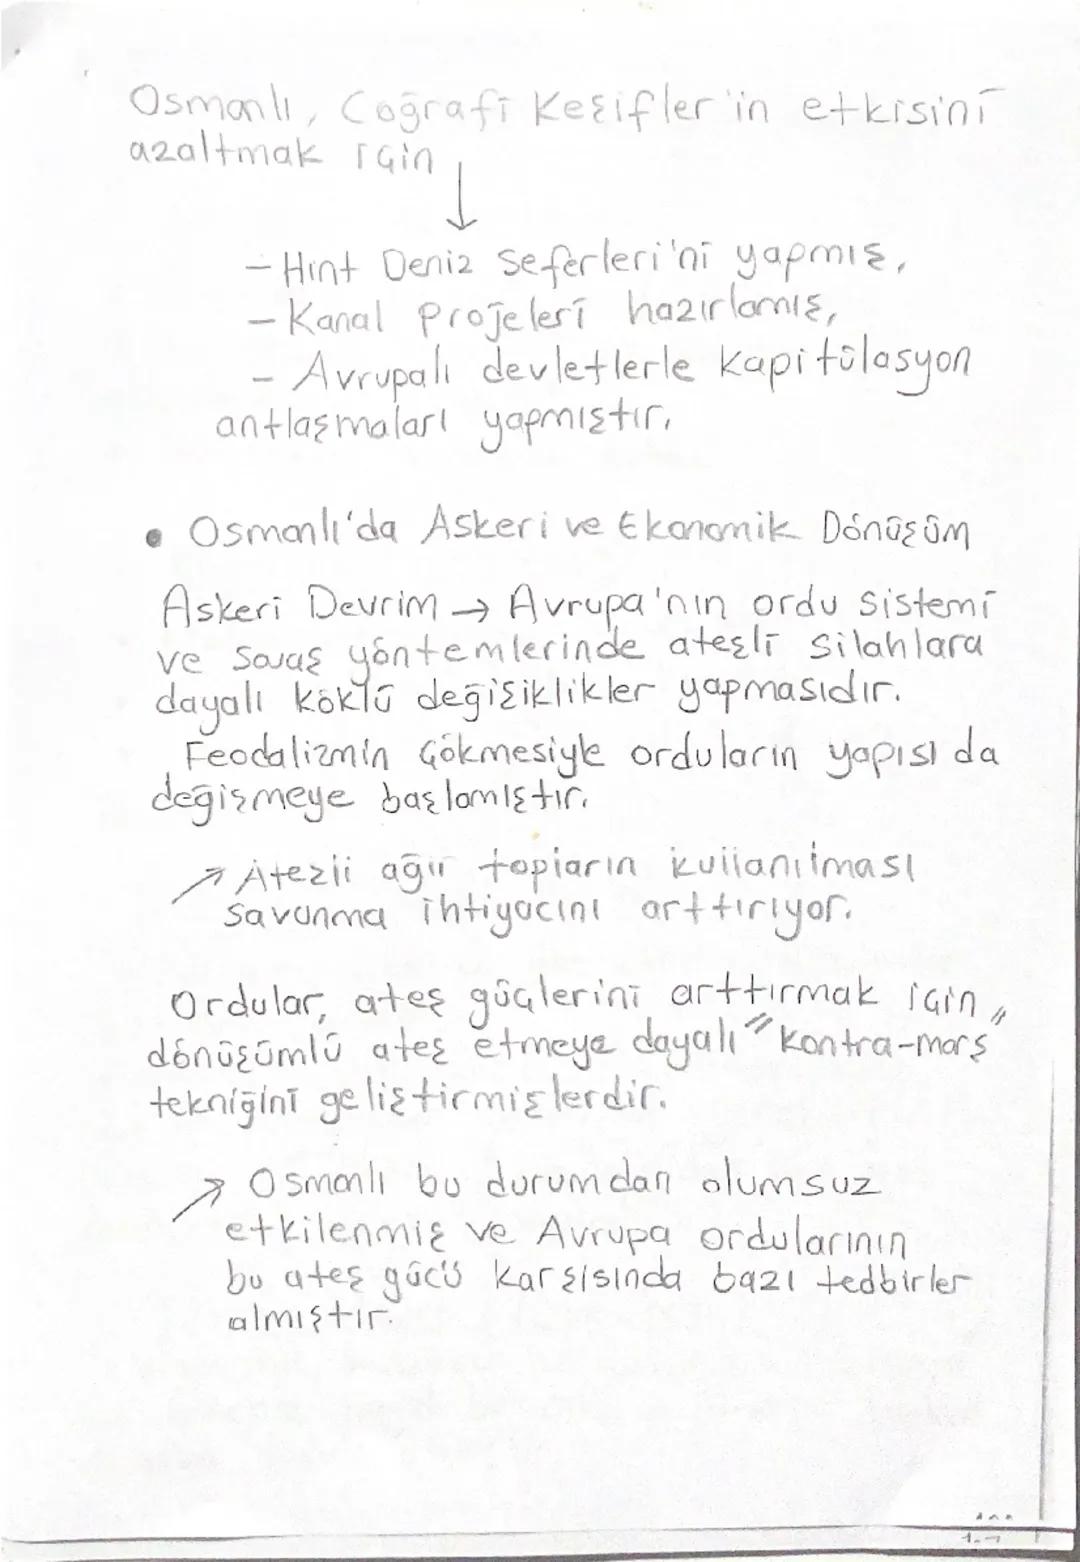 Osmanlı, Coğrafi Keşifler'in etkisini
azaltmak için
↓
- Hint Deniz Seferleri'ni yapmış,
- Kanal Projeleri hazırlamış,
- Avrupalı devletlerle kapitülasyon
antlaşmaları yapmıştır.
• Osmanlı'da Askeri ve Ekonomik Dönüşüm
Askeri Devrim → Avrupa'nın ordu sistemi
ve savaş yöntemlerinde ateşli silahlara
dayalı köklü değişiklikler yapmasıdır.
Feodalizmin çökmesiyle orduların yapısı da
değişmeye başlamıştır.
↗ Ateşli ağır topların kullanılması
savunma ihtiyacını arttırıyor.
Ordular, ateş güçlerini arttırmak için
dönüşümlü ateş etmeye dayalı "kontra-marş"
tekniğini geliştirmişlerdir.
↗ Osmanlı bu durumdan olumsuz
etkilenmiş ve Avrupa ordularının
bu ateş gücü karşısında bazı tedbirler
almıştır.